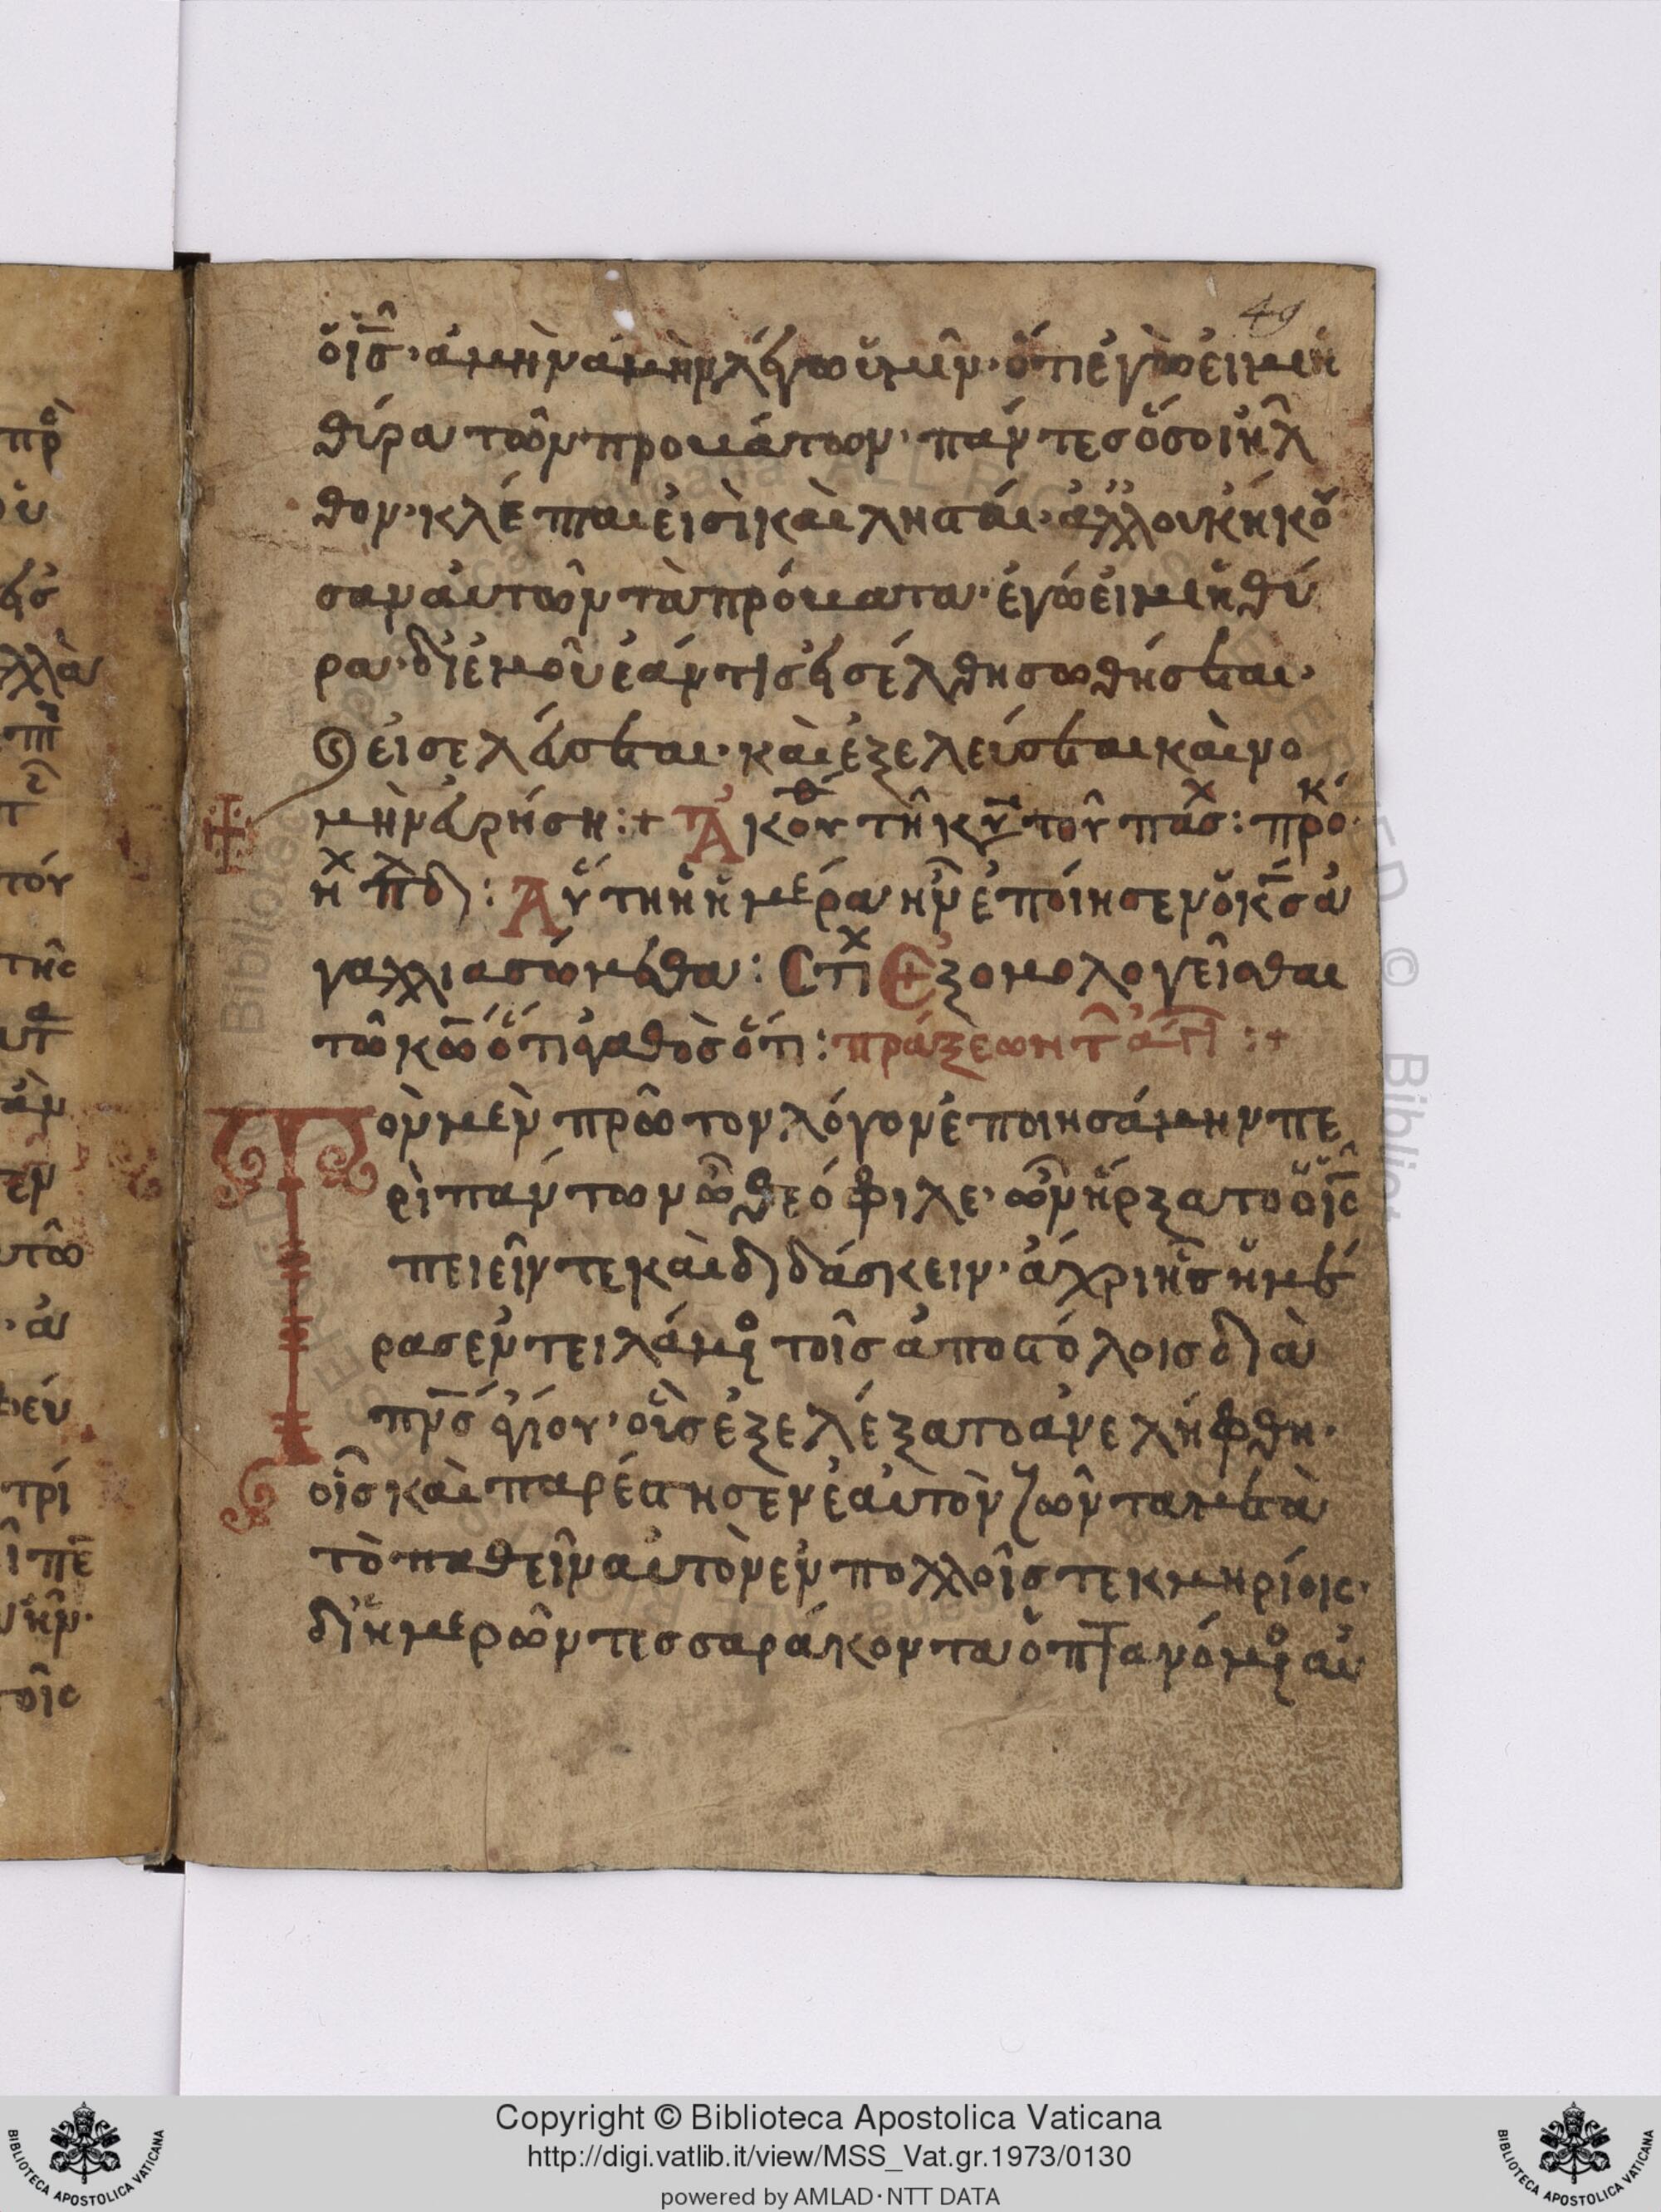 49
ὁ ι̅ς̅· ἀμὴν ἀμὴν λέγω ὑμῖν· ὅτι ἐγὼ εἰμι ἡ
θύρα τῶν προβάτων· πάντες ὅσοι ἦλ
θον· κλέπται εἰσὶ καὶ λησταί· ἀλλ οὐκ ἤκου
σαν αὐτῶν τὰ πρόβατα· ἐγώ εἰμι ἡ θύ
ρα· δι ἐμοῦ ἐάν τις εἰσέλθη σωθήσεται·
καὶ εἰσελεύσεται· καὶ ἐξελεύσεται καὶ νο
μὴν εὑρήση :+ Τῆ κυ̅ τοῦ πάσχ : προκ
ἠχ πδ : Αὕτη ἡ ἡμέρα ἣν ἐποίησεν ὁ κ̅ς̅ ἀ
γαλλιασώμεθα : Στιχ Ἐξομολογεῖσθαι
τῶ κ̅ω̅ ὅτι ἀγαθὸς ὅτι : πράξεων τ ἀπ :+
Τὸν μὲν πρῶτον λόγον ἐποιησάμην πε
ρὶ πάντων ὦ θεόφιλε· ὧν ἤρξατο ὁ ι̅ς̅
ποιεῖν τε καὶ διδάσκειν· ἄχρι ἧς ἡμέ
ρας ἐντειλάμενος τοῖς ἀποστόλοις διὰ
πν̅ς̅ ἁγίου· οὓς ἐξελέξατο ἀνελήφθη·
οἷς καὶ παρέστησεν ἑαυτὸν ζῶντα μετὰ
τὸ παθεῖν αὐτὸν ἐν πολλοῖς τεκμηρίοις·
δι ἡμερῶν τεσσαράκοντα ὀπτανόμενος αὐ
Copyright © Biblioteca Apostolica Vaticana
http://digi.vatlib.it/view/MSS_Vat.gr.1973/0130
powered by AMLAD·NTT DATA
BIBLIOTECA APOSTOLICA VATICANA
BIBLIOTECA APOSTOLICA VATICANA